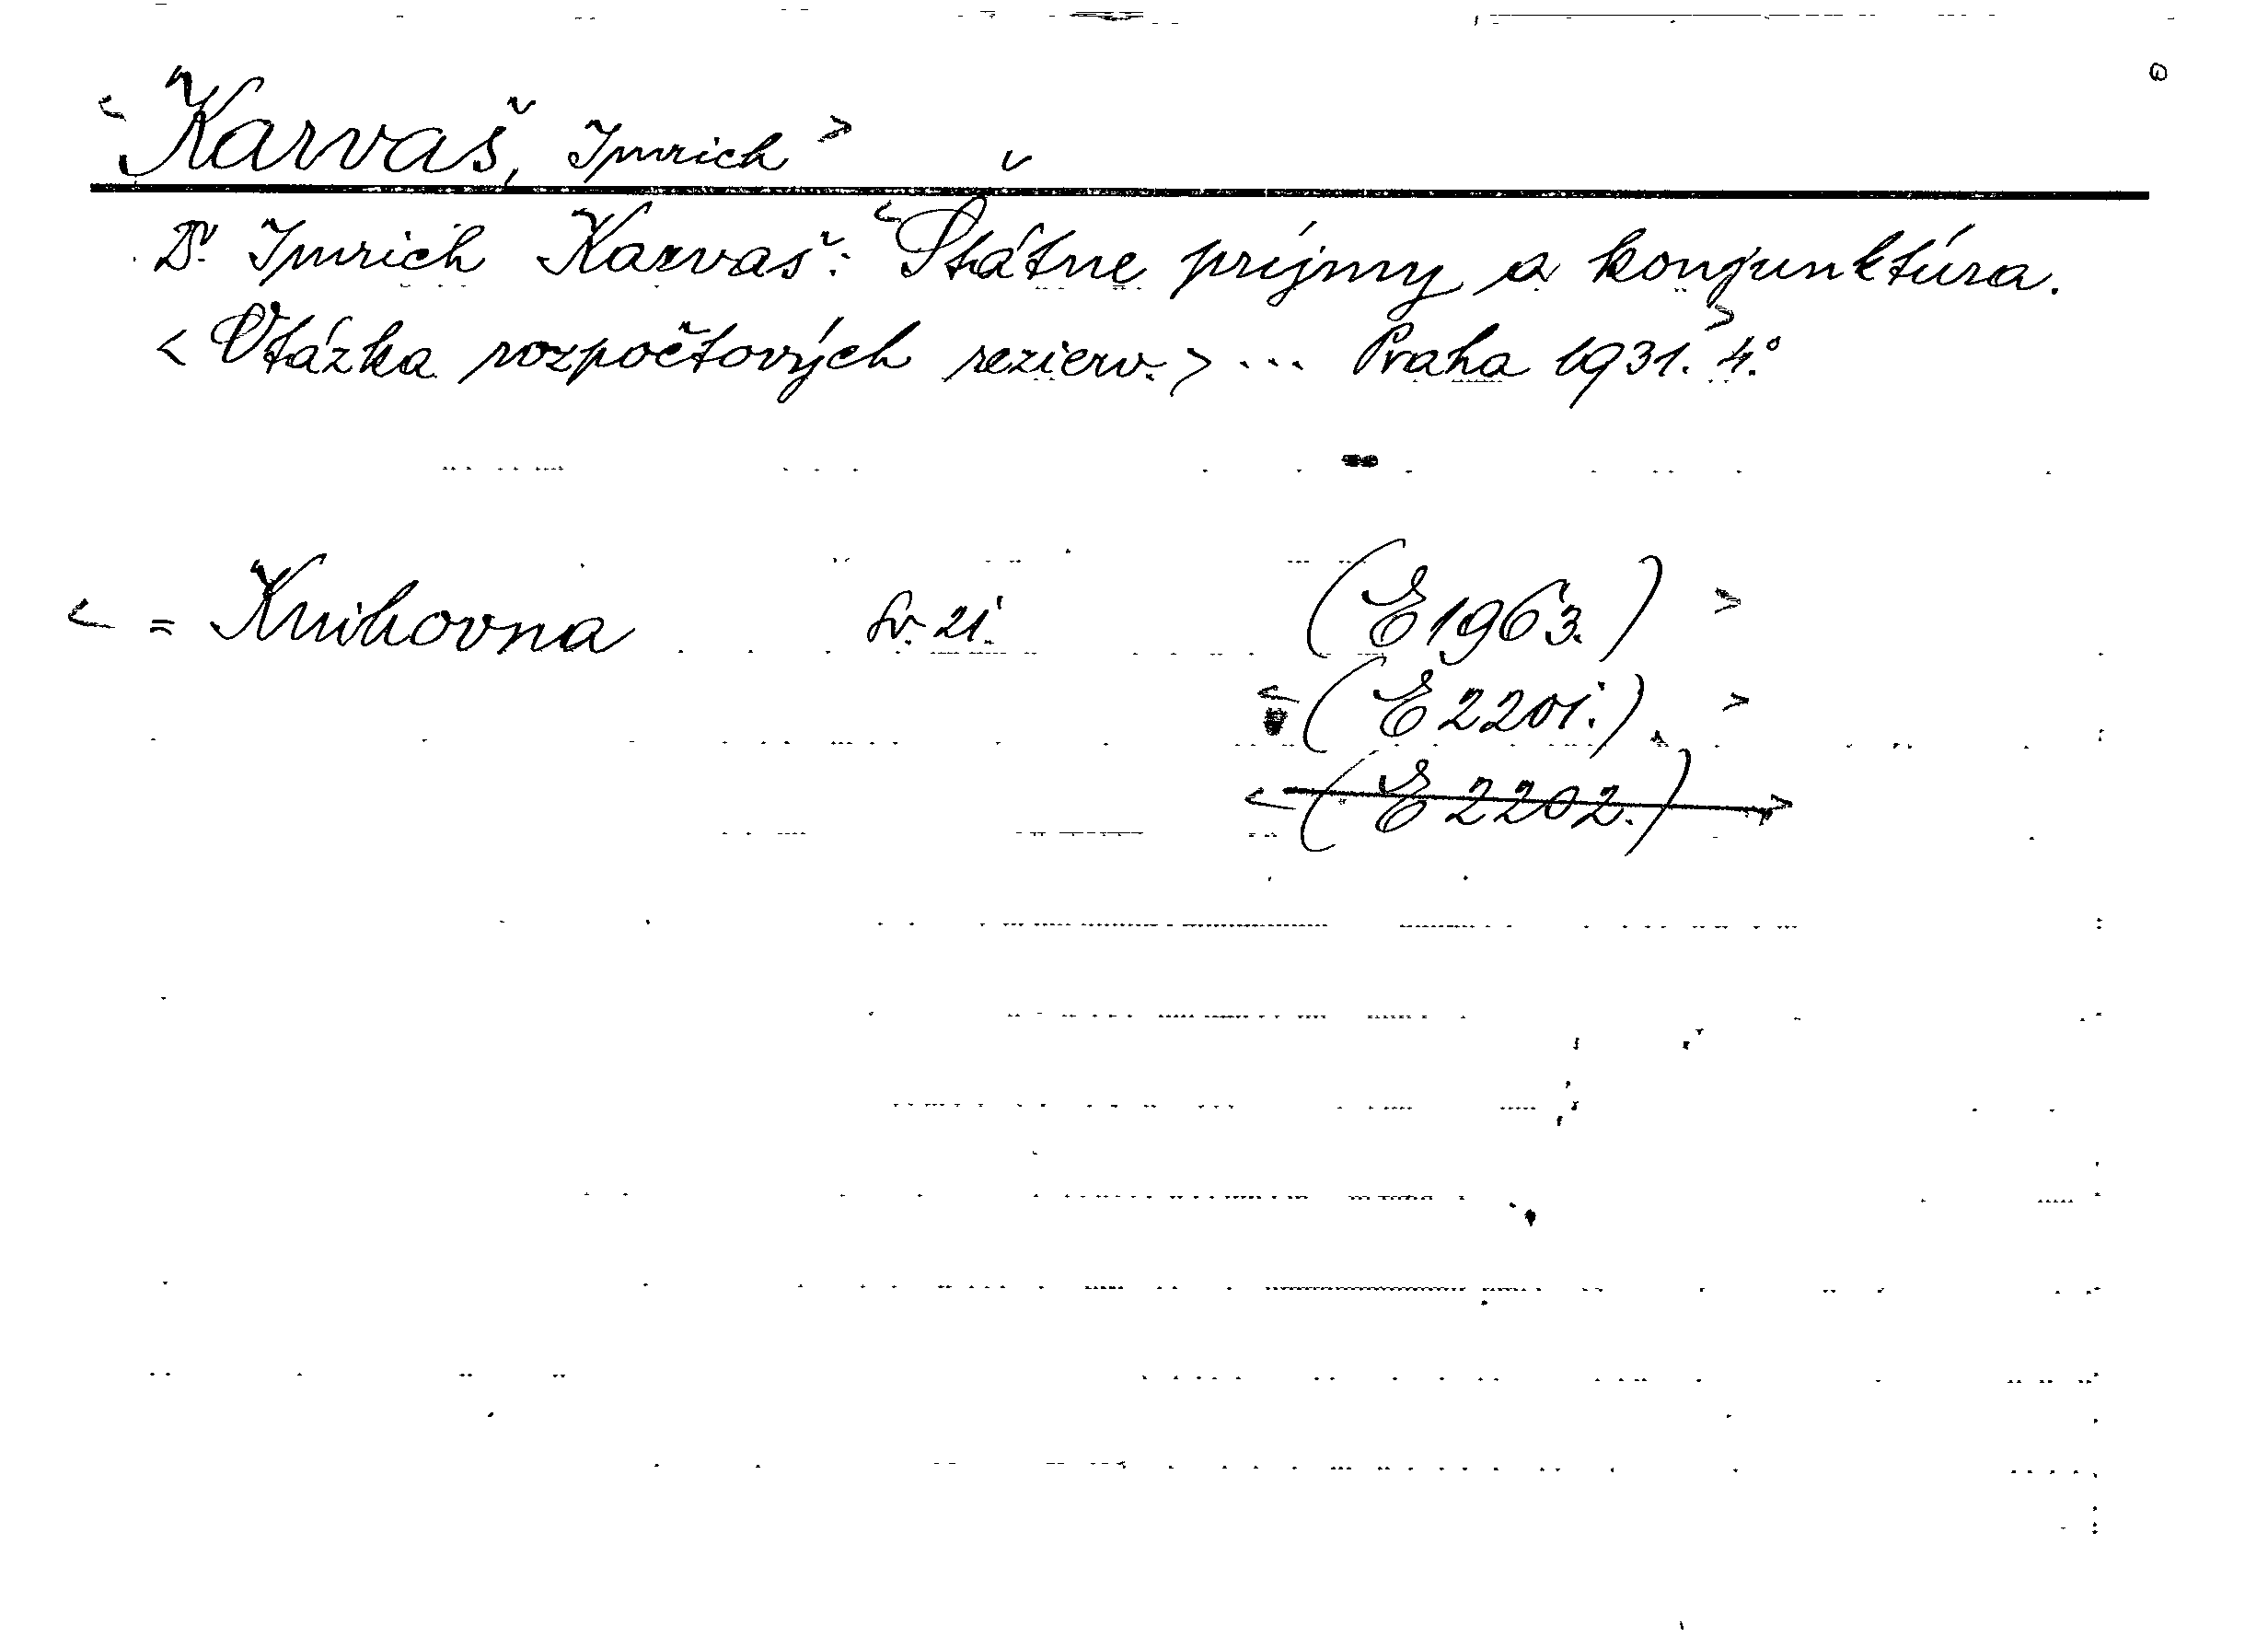 <Karvaš, Imrich>
Dr. Imrich Karvaš: <Štátne príjmy a konjunktúra.>
<Otázka rozpočtových rezierv.> ... Praha 1931. 4.°
< = Knihovna Sv. 21. (E 1963.) >
<(E 2201.) >
<(E 2202.)>